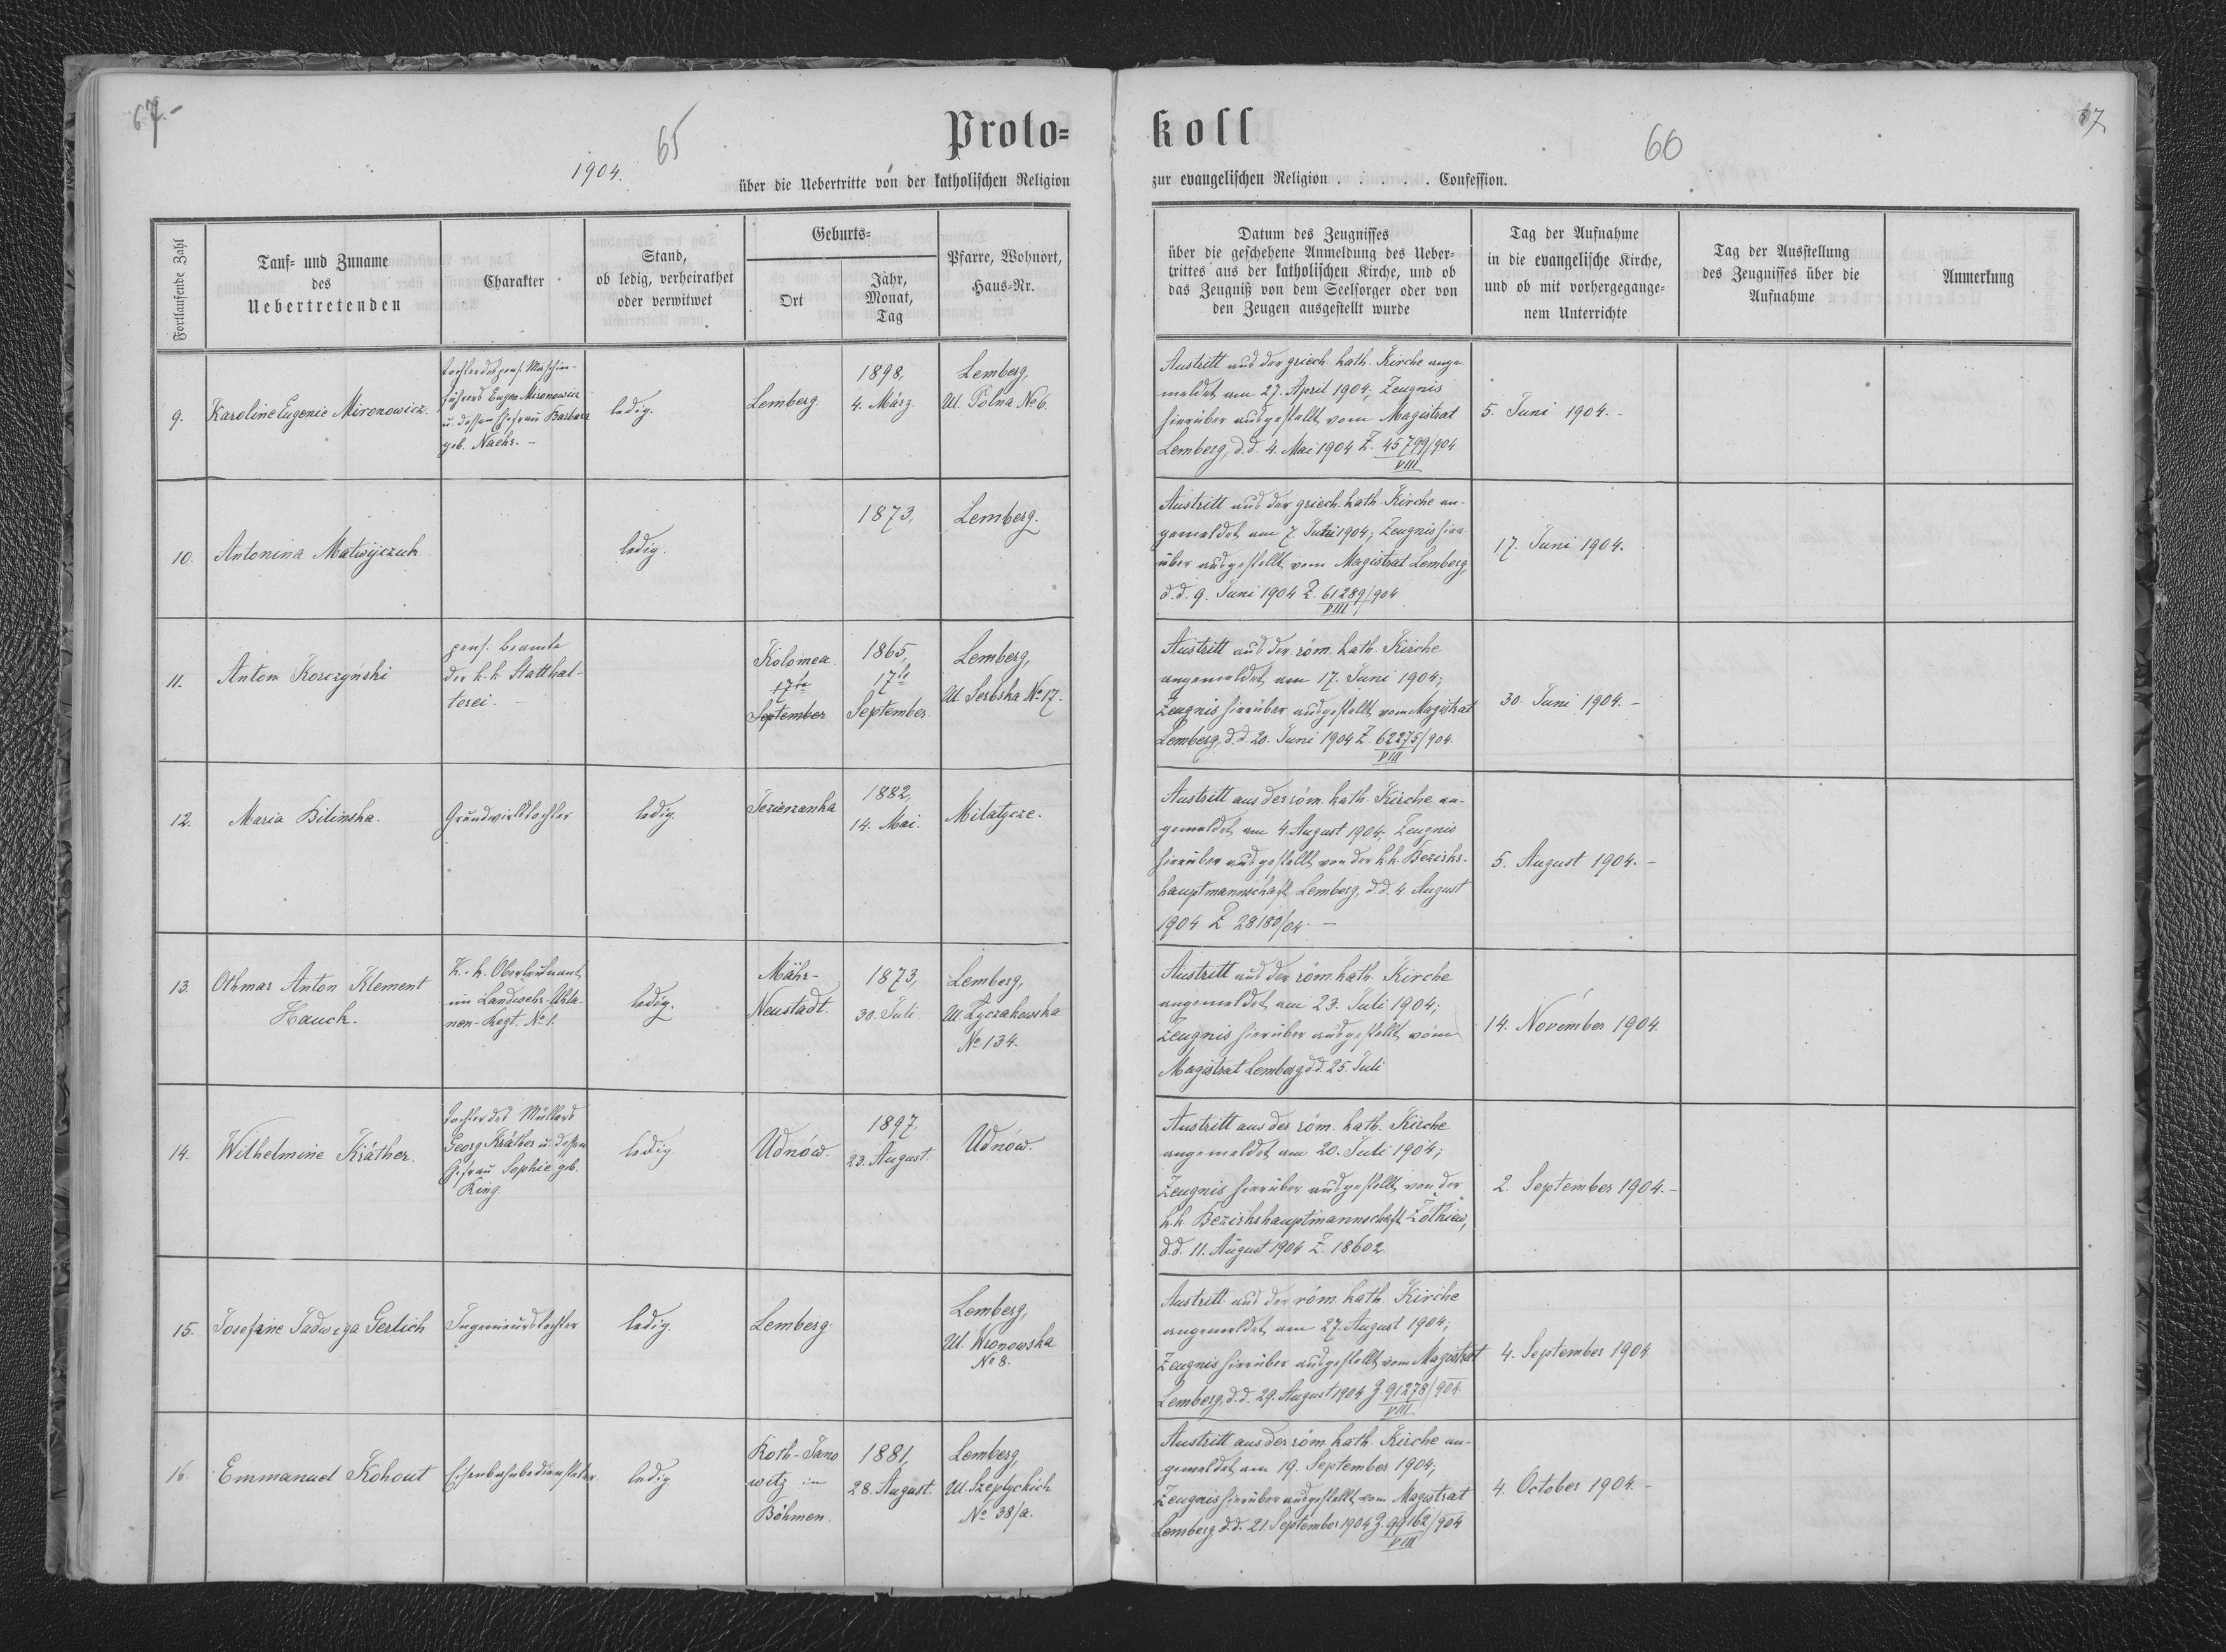 67.-
65
1904.
Proto-
über die Uebertritte von der katholischen Religion
Fortlaufende Zahl
Tauf- und Zuname
des
Uebertretenden
Charakter
Stand,
ob ledig, verheirathet
oder verwitwet
Geburts-
Ort
Jahr,
Monat,
Tag
Pfarre, Wohnort,
Haus-Nr.
9.
Karoline Eugenie Mironowicz.
Tochter des pens. Maschin-
führers Eugen Mironowicz
u. dessen Ehefrau Barbara
geb. Nachr. -
ledig.
Lemberg.
1898,
4. März.
Lemberg,
Ul. Polna No 6.
10.
Antonina Matwijczuk
ledig.
1873,
Lemberg.
11.
Anton Korczyński
pens. Beamte
der k. k. Statthal-
terei. -
Kolomea.
17te
September
1865,
17te
September
Lemberg,
Ul. Serbska No 17.
12.
Maria Bilinska.
Grundwirtstochter
ledig.
Jezierzanka
1882,
14. Mai.
Milatycze.
13.
Othmar Anton Klement
Hauck.
K. k. Oberleutnant
im Landwehr-Uhla-
nen-Regt. No 1.
ledig.
Mähr-
Neustadt.
1873,
30. Juli.
Lemberg,
Ul. Łyczakowska
No 134.
14.
Wilhelmine Kräther.
Tochter des Müllers
Georg Kräther u. dessen
Ehefrau Sophie geb.
King.
ledig.
Udnów.
1897.
23. August.
Udnów.
15.
Josefine Jadwiga Gerlich
Ingenieurstochter
ledig.
Lemberg.
Lemberg,
Ul. Wronowska
No 8.
16.
Emmanuel Kohout
Eisenbahnbediensteter.
ledig.
Roth-Jano
witz in
Böhmen.
1881,
28. August.
Lemberg,
Ul. Szeptyckich
No 38/a.
koll
66
67
zur evangelischen Religion . . . . . . Confession.
Datum des Zeugnisses
über die geschehene Anmeldung des Ueber-
trittes aus der katholischen Kirche, und ob
das Zeugniß von dem Seelsorger oder von
den Zeugen ausgestellt wurde
Tag der Aufnahme
in die evangelische Kirche,
und ob mit vorhergegange-
nem Unterrichte
Tag der Ausstellung
des Zeugnisses über die
Aufnahme
Anmerkung
Austritt aus der griech. kath. Kirche ange-
meldet am 27. April 1904; Zeugnis
hierüber ausgestellt vom Magistrat
Lemberg, d.d. 4. Mai 1904 Z. 45799/904
VIII
5. Juni 1904. -
Austritt aus der griech. kath. Kirche an-
gemeldet am 7. Juni 1904; Zeugnis hier-
über ausgestellt vom Magistrat Lemberg,
d.d. 9. Juni 1904 Z. 61289/904
VIII
17. Juni 1904.
Austritt aus der röm. kath. Kirche
angemeldet am 17. Juni 1904;
Zeugnis hierüber ausgestellt vom Magistrat
Lemberg, d.d. 20. Juni 1904 Z. 62275/904.
VIII
30. Juni 1904. -
Austritt aus der röm. kath. Kirche an-
gemeldet am 4. August 1904; Zeugnis
hierüber ausgestellt von der k.k. Bezirks-
hauptmannschaft Lemberg, d.d. 4. August
1904 Z 28180/04. -
5. August 1904. -
Austritt aus der röm. kath. Kirche
angemeldet am 23. Juli 1904;
Zeugnis hierüber ausgestellt vom
Magistrat Lemberg d.d. 25. Juli
14. November 1904.
Austritt aus der röm. kath. Kirche
angemeldet am 20. Juli 1904;
Zeugnis hierüber ausgestellt von der
k.k. Bezirkshauptmannschaft Żółkiew,
d.d. 11. August 1904 Z. 18602.
2. September 1904. -
Austritt aus der röm. kath. Kirche
angemeldet am 27. August 1904;
Zeugnis hierüber ausgestellt vom Magistrat
Lemberg, d.d. 29. August 1904 Z. 91278/904.
VIII
4. September 1904
Austritt aus der röm. kath. Kirche an-
gemeldet am 19. September 1904;
Zeugnis hierüber ausgestellt vom Magistrat
Lemberg d.d. 21. September 1904 Z. 99162/904
VIII
4. October 1904. -